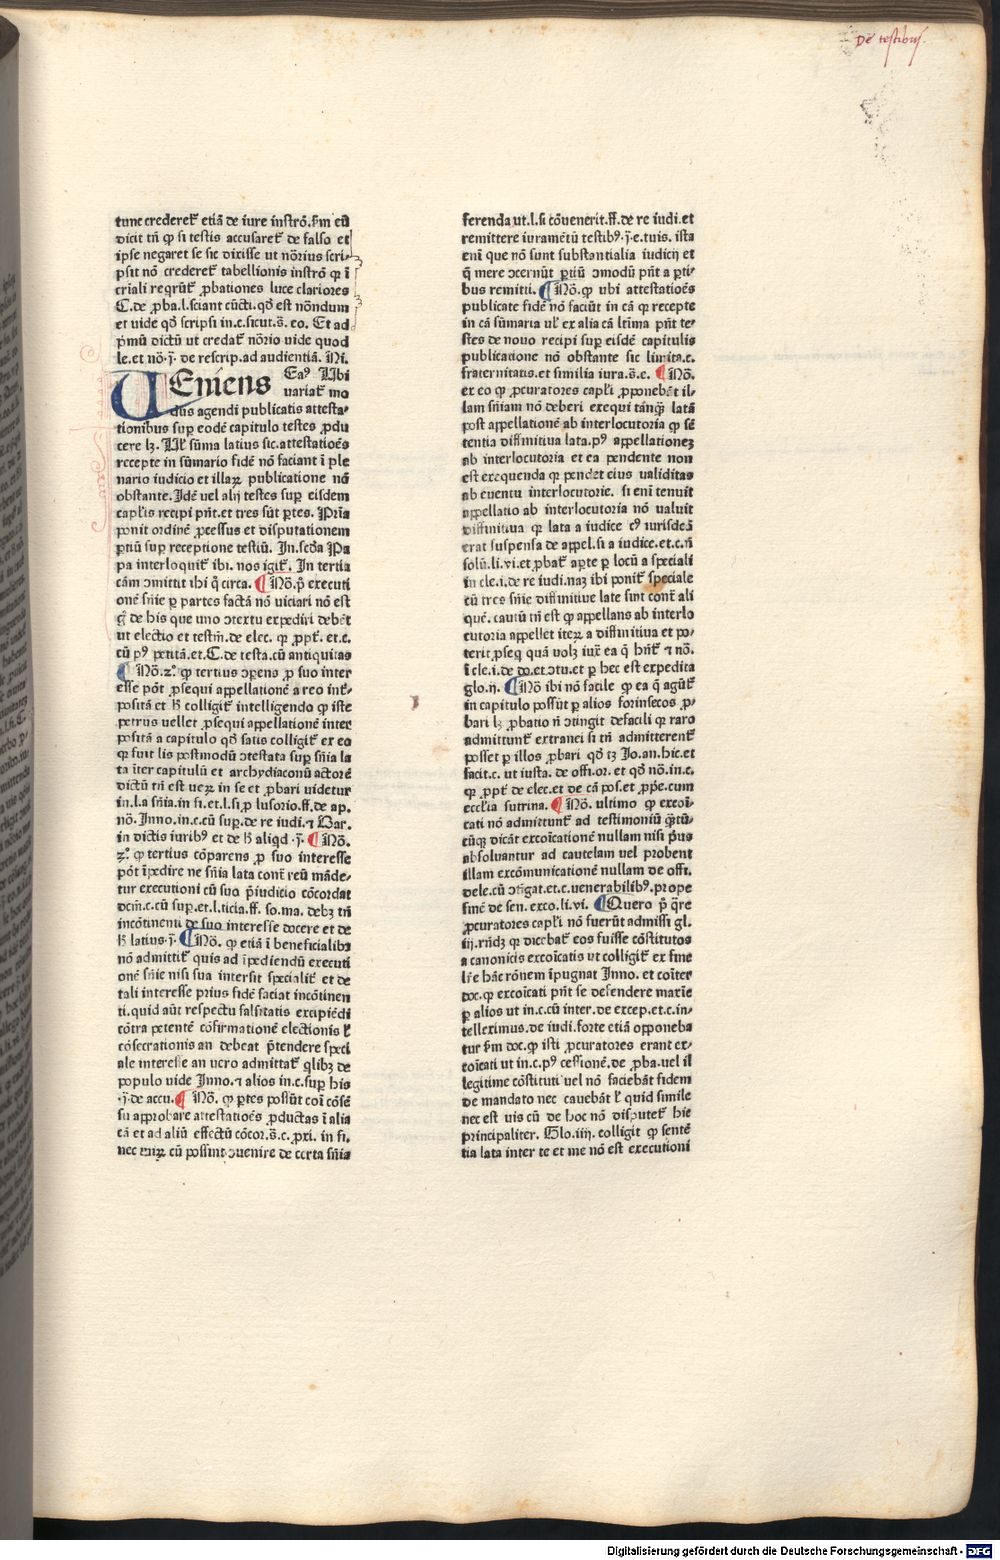 De testibus.
tunc crederet᷑ etiā de iure instrō. ẜm cū
dicit tn̄ ꝙ si testis accusaret᷑ de falso et
ipse negaret se sic dixisse ut nōrius scri⸗
psit nō crederet᷑ tabellionis instrō qꝛ ī
cri̅alibus reqrūt᷑ ꝓbationes luce clariores
C. de ꝓba. l. sciant cūcti. qd̓ est nōndum
et uide qd̓ scripsi in. c. sicut. s̄. eo. Et ad
pꝛmū dictū ut credat᷑ nōrio uide quod
le. et nō. ī. de rescrip. ad audientiā. Ni.
UEniens Eaꝰ Ubi
uariat᷑ mo
dus agendi publicatis attesta⸗
tionibus suꝑ eodē capitulo testes ꝓdu
cere lꝫ. Ul̓ sūma latius sic. attestatioēs
recepte in sūmario fidē nō faciant ī ple
nario iudicio et illaꝝ publicatione nō
obstante. Idē uel alij testes suꝑ eisdem
capl̓is recipi pn̄t. et tres sūt ꝑtes. Pꝛīa
ponit ordinē ꝓcessus et disputationem
ꝑtiū suꝑ receptione testiū. In. scd̓a Pa
pa interloquit᷑ ibi. nos igit᷑. In tertia
cām ↄmittit ibi q̄ circa. ¶ Nō. pͦ executi
onē sn̄ie ꝑ partes factā nō uiciari nō est
de his que uno ↄtextu expediri debēt
ut electio et testm̄. de elec. qꝛ ꝓpt᷑. et. c.
cū pꝰ petitā. et. C. de testa. cū antiquitas
¶ Nō. 2ͦ. ꝙ tertius ↄꝑens ꝓ suo inter
esse pōt ꝓsequi appellationē a reo int᷑⸗
positā et ħ colligit᷑ intelligendo ꝙ iste
petrus uellet ꝓsequi appellationē inter
positā a capitulo qd̓ satis colligit᷑ ex eo
qꝛ fuit lis postmodū ↄtestata suꝑ sn̄ia la
ta īter capitulū et archydiaconū actorē
dictū tn̄ est ueꝝ in se et ꝓbari uidetur
in. l. a sn̄ia. in fi. et. l. si ꝓ lusorio. ff. de ap.
nō. Inno. in. c. cū suꝑ. de re iudi. ⁊ Bar.
in dictis iuribꝰ et de ħ aliqd . ī. ¶ Nō.
2ͦ. ꝙ tertius cōparens ꝓ suo interesse
pōt īpedire ne sn̄ia lata cont᷑ reū māde⸗
tur executioni cū suo p̄iudicio cōcordat
dcm̄. c. cū suꝑ. et. l. ticia. ff. so. ma. debꝫ tn̄
incōtinenti de suo interesse docere et de
ħ latius. ī. ¶ Nō. ꝙ etiā ī beneficialibꝫ
nō admittit᷑ quis ad īpediendū executi
onē sn̄ie nisi sua intersit specialit᷑ et de
tali interesse prius fidē faciat incōtinen
ti. quid aūt respectu falsitatis excipiēdi
cōtra petentē cōfirmationē electionis ł
cōsecrationis an debeat p̄tendere speci
ale interesse an uero admittat᷑ qlibꝫ de
populo uide Inno. ⁊ alios in. c. suꝑ his
. ī. de accu. ¶ Nō. ꝙ ꝑtes possūt coī cōsē
su approbare attestatioēs ꝓductas ī alia
cā et ad aliū effectū cōcor. s̄. c. ꝓxi. in fi.
nec cū possint ↄuenire de certa sn̄ia
ferenda ut. l. si cōuenerit. ff. de re iudi. et
remittere iuramētū testibꝰ. ī. e. tuis. ista
eni que nō sunt substantialia iudicij et
q̄ mere ↄcernūt ꝑtiū ↄmodū pn̄t a ꝑti⸗
bus remitti. ¶ Nō. ꝙ ubi attestatioēs
publicate fidē nō faciūt in cā qꝛ recepte
in cā sūmaria ul̓ ex alia cā ltīma pn̄t te⸗
stes de nouo recipi suꝑ eisdē capitulis
publicatione nō obstante sic limita. c.
fraternitatis. et similia iura. s̄. e. ¶ Nō.
ex eo ꝙ ꝓcuratores capl̓i ꝓponebāt il⸗
lam sn̄iam nō deberi exequi tāqꝫ latā
post appellationē ab interlocutoria ꝙ sē
tentia diffinitiua lata. pꝰ appellationeꝫ
ab interlocutoria et ea pendente non
est exequenda qꝛ pendet eius validitas
ab euentu interlocutorie. si eni tenuit
appellatio ab interlocutoria nō ualuit
diffinitiua qꝛ lata a iudice cꝰ iurisdcō
erat suspensa de appel. si a iudice. et. c. nō
solū. li. vi. et ꝓbat᷑ aꝑte ꝑ locū a speciali
in cle. i. de re iudi. naꝫ ibi ponit᷑ speciale
cū tres sn̄ie diffinitiue late sunt cont᷑ ali
quē. cautū tn̄ est ꝙ appellans ab interlo
cutoria appellet iteꝝ a diffinitiua et po⸗
terit ꝓseq quā uolꝫ iux̄ ea q̄ hn̄t᷑ ⁊ nō.
ī cle. i. de do. et ↄtu. et ꝑ hec est expedita
glo. ij. ¶ Nō ibi nō facile ꝙ ea q̄ agūt᷑
in capitulo possūt ꝑ alios forinsecos ꝓ⸗
bari lꝫ ꝓbatio nō ↄtingit defacili qꝛ raro
admittunt᷑ extranei si tn̄ admitterent᷑
posset ꝑ illos ꝓbari qd̓ tꝫ Jo. an. hic. et
facit. c. ut iusta. de offi. or. et qd̓ nō. in. c.
qꝛ ꝓpt᷑ de elec. et de cā pos. et ꝓpe. cum
eccl̓ia sutrina. ¶ Nō. ultimo ꝙ excoī⸗
cati nō admittunt᷑ ad testimoniū q̄tū⸗
cūqꝫ dicāt excoīcationē nullam nisi pꝛius
absoluantur ad cautelam uel probent
illam excōmunicationē nullam de offi.
dele. cū ↄtīgat. et. c. uenerabilibꝰ. prope
finē de sen. exco. li. vi. ¶ Quero pͦ q̄re
ꝓcuratores capl̓i nō fuerūt admissi gl.
iij. rn̄dꝫ ꝙ dicebāt᷑ eos fuisse cōstitutos
a canonicis excoīcatis ut colligit᷑ ex fine
lr̄e hāc rōnem īpugnat Inno. et coīter
doc. ꝙ excoīcati pn̄t se defendere maxīe
ꝑ alios ut in. c. cū inter. de excep. et. c. in⸗
tellexīmus. de iudi. forte etiā opponeba
tur ẜm doc. ꝙ isti ꝓcuratores erant ex⸗
coīcati ut in. c. pꝰ cessionē. de ꝓba. uel il
legitime cōstituti uel nō faciebāt fidem
de mandato nec cauebāt ł quid simile
nec est uis cū de hoc nō disputet᷑ hic
principaliter. Glo. iiij. colligit ꝙ sentē
tia lata inter te et me nō est executioni
Digitalisierung gefördert durch die Deutsche Forschungsgemeinschaft - DFG